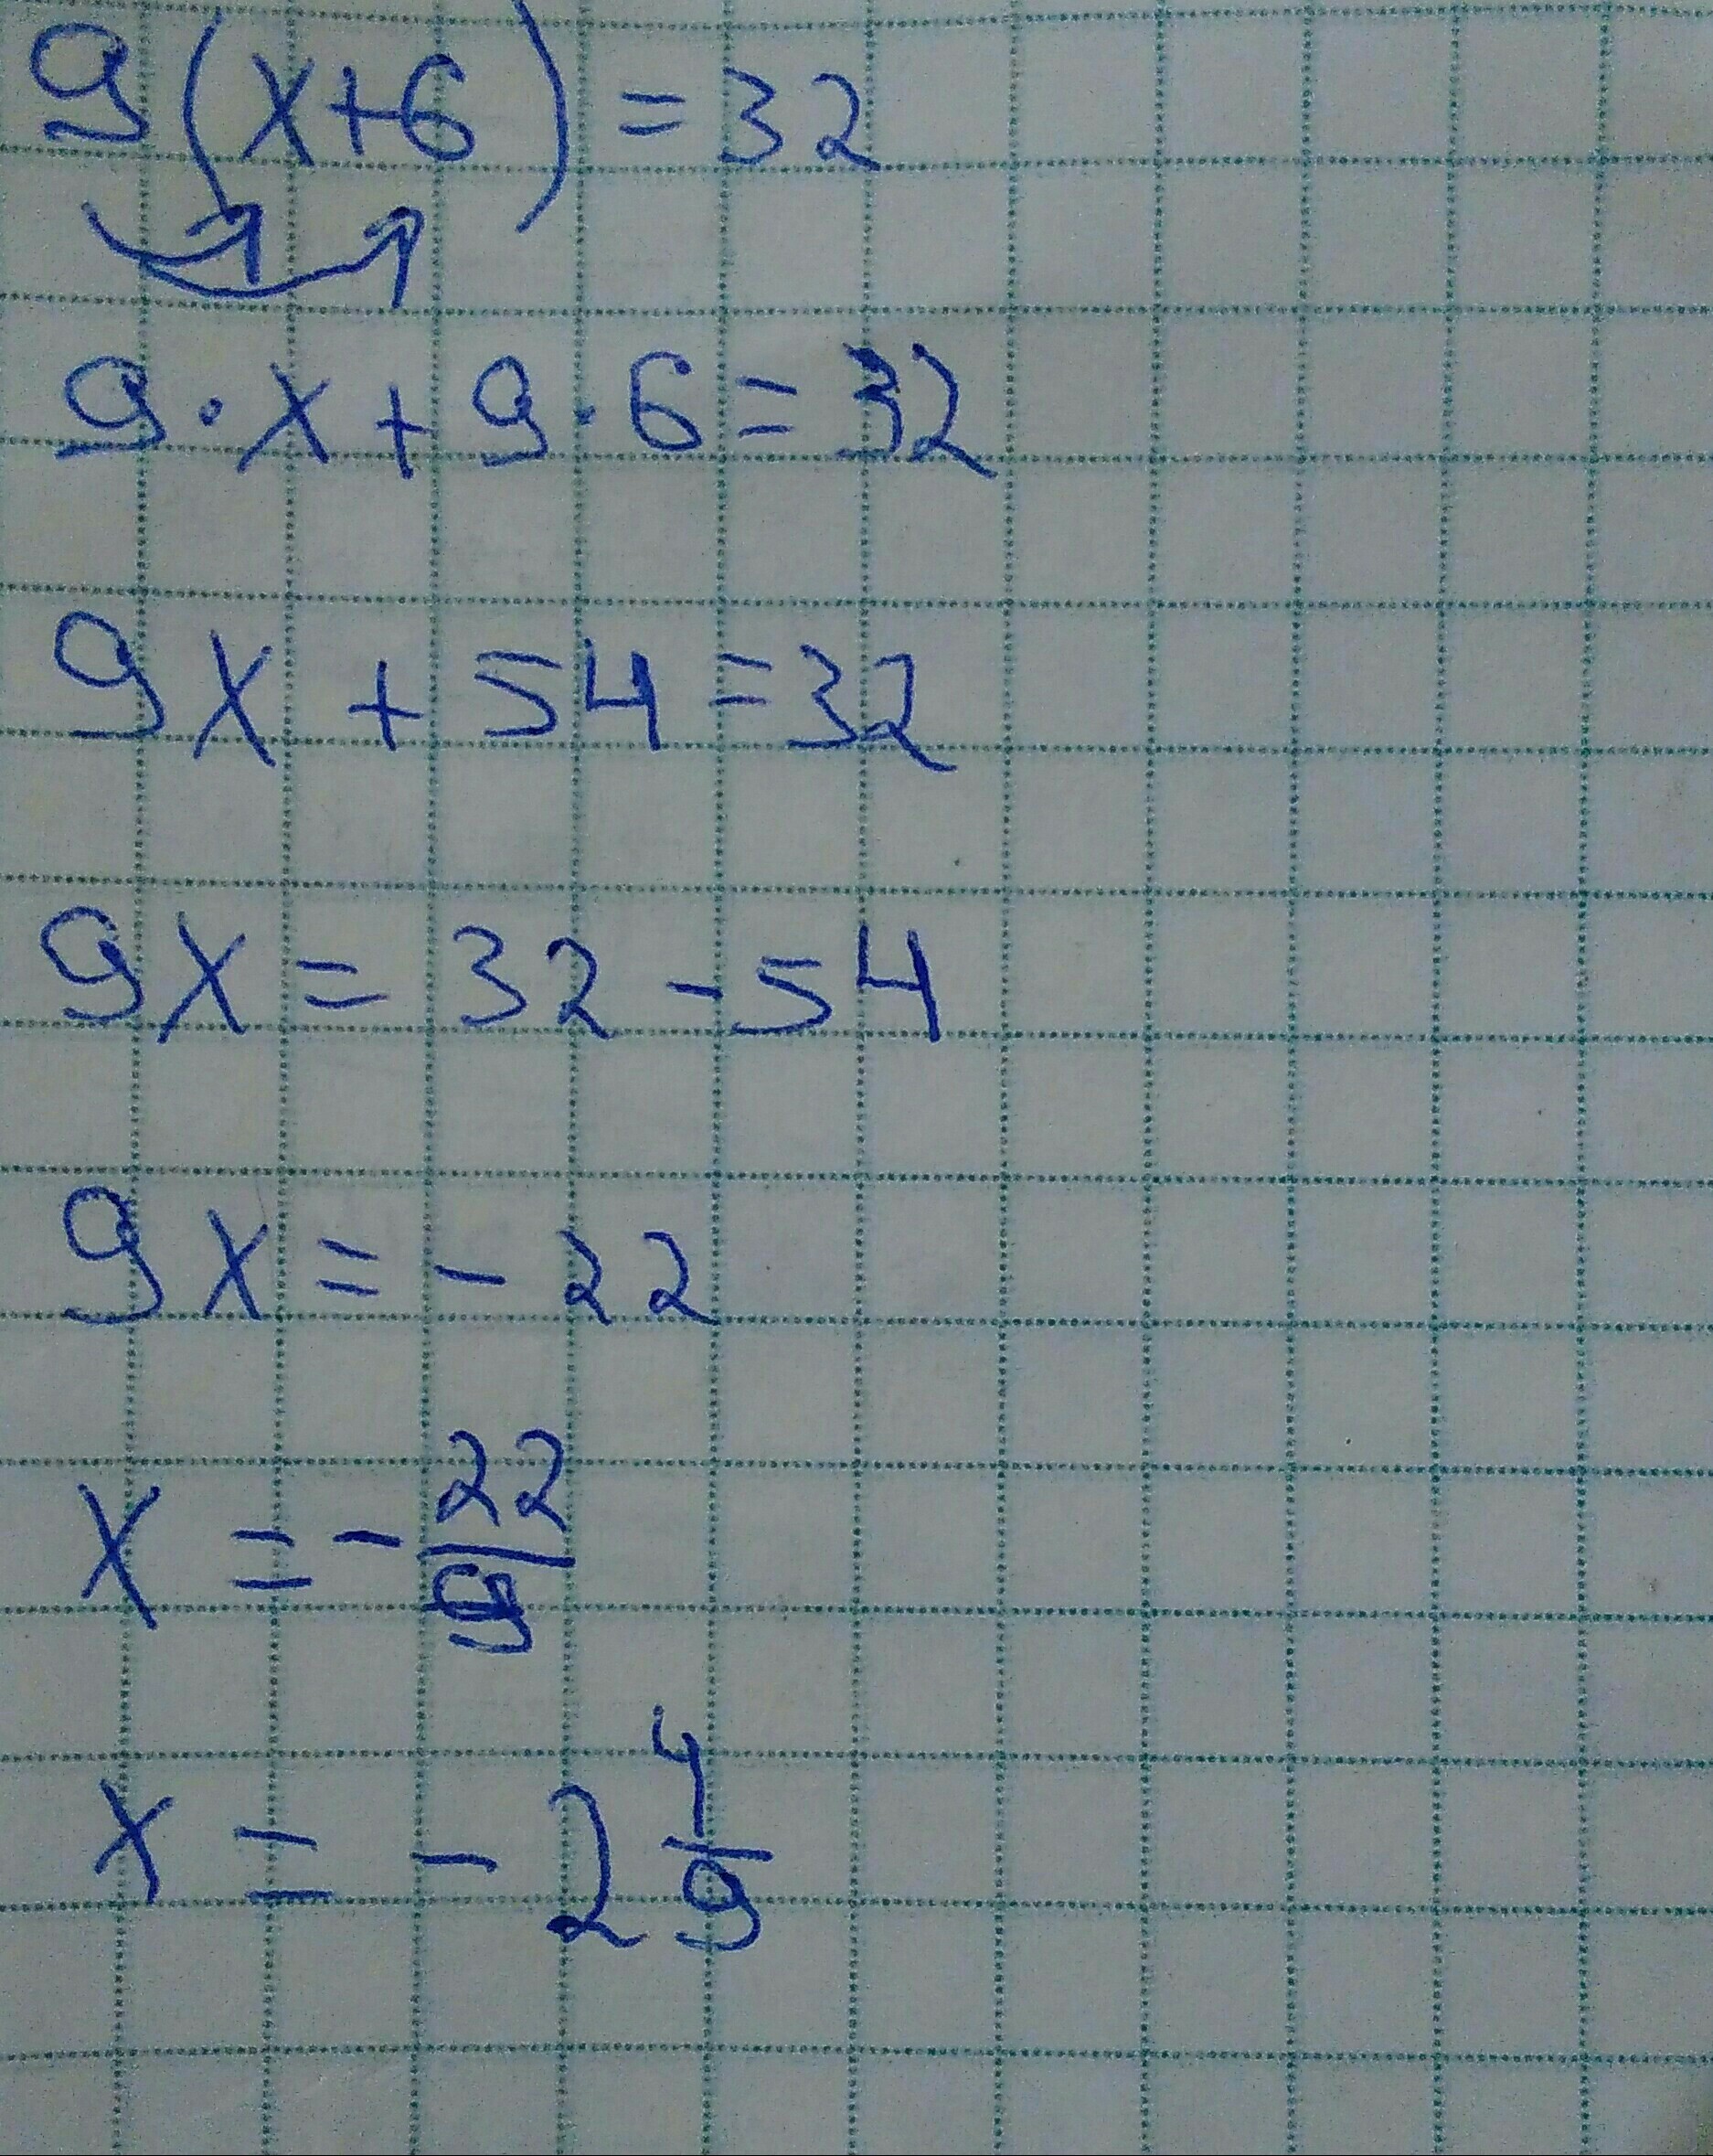 9(x+6)=32
9·x+9·6=32
9x+54=32
9x=32-54
9x=-22
x=-22/9
x=-2 4/9